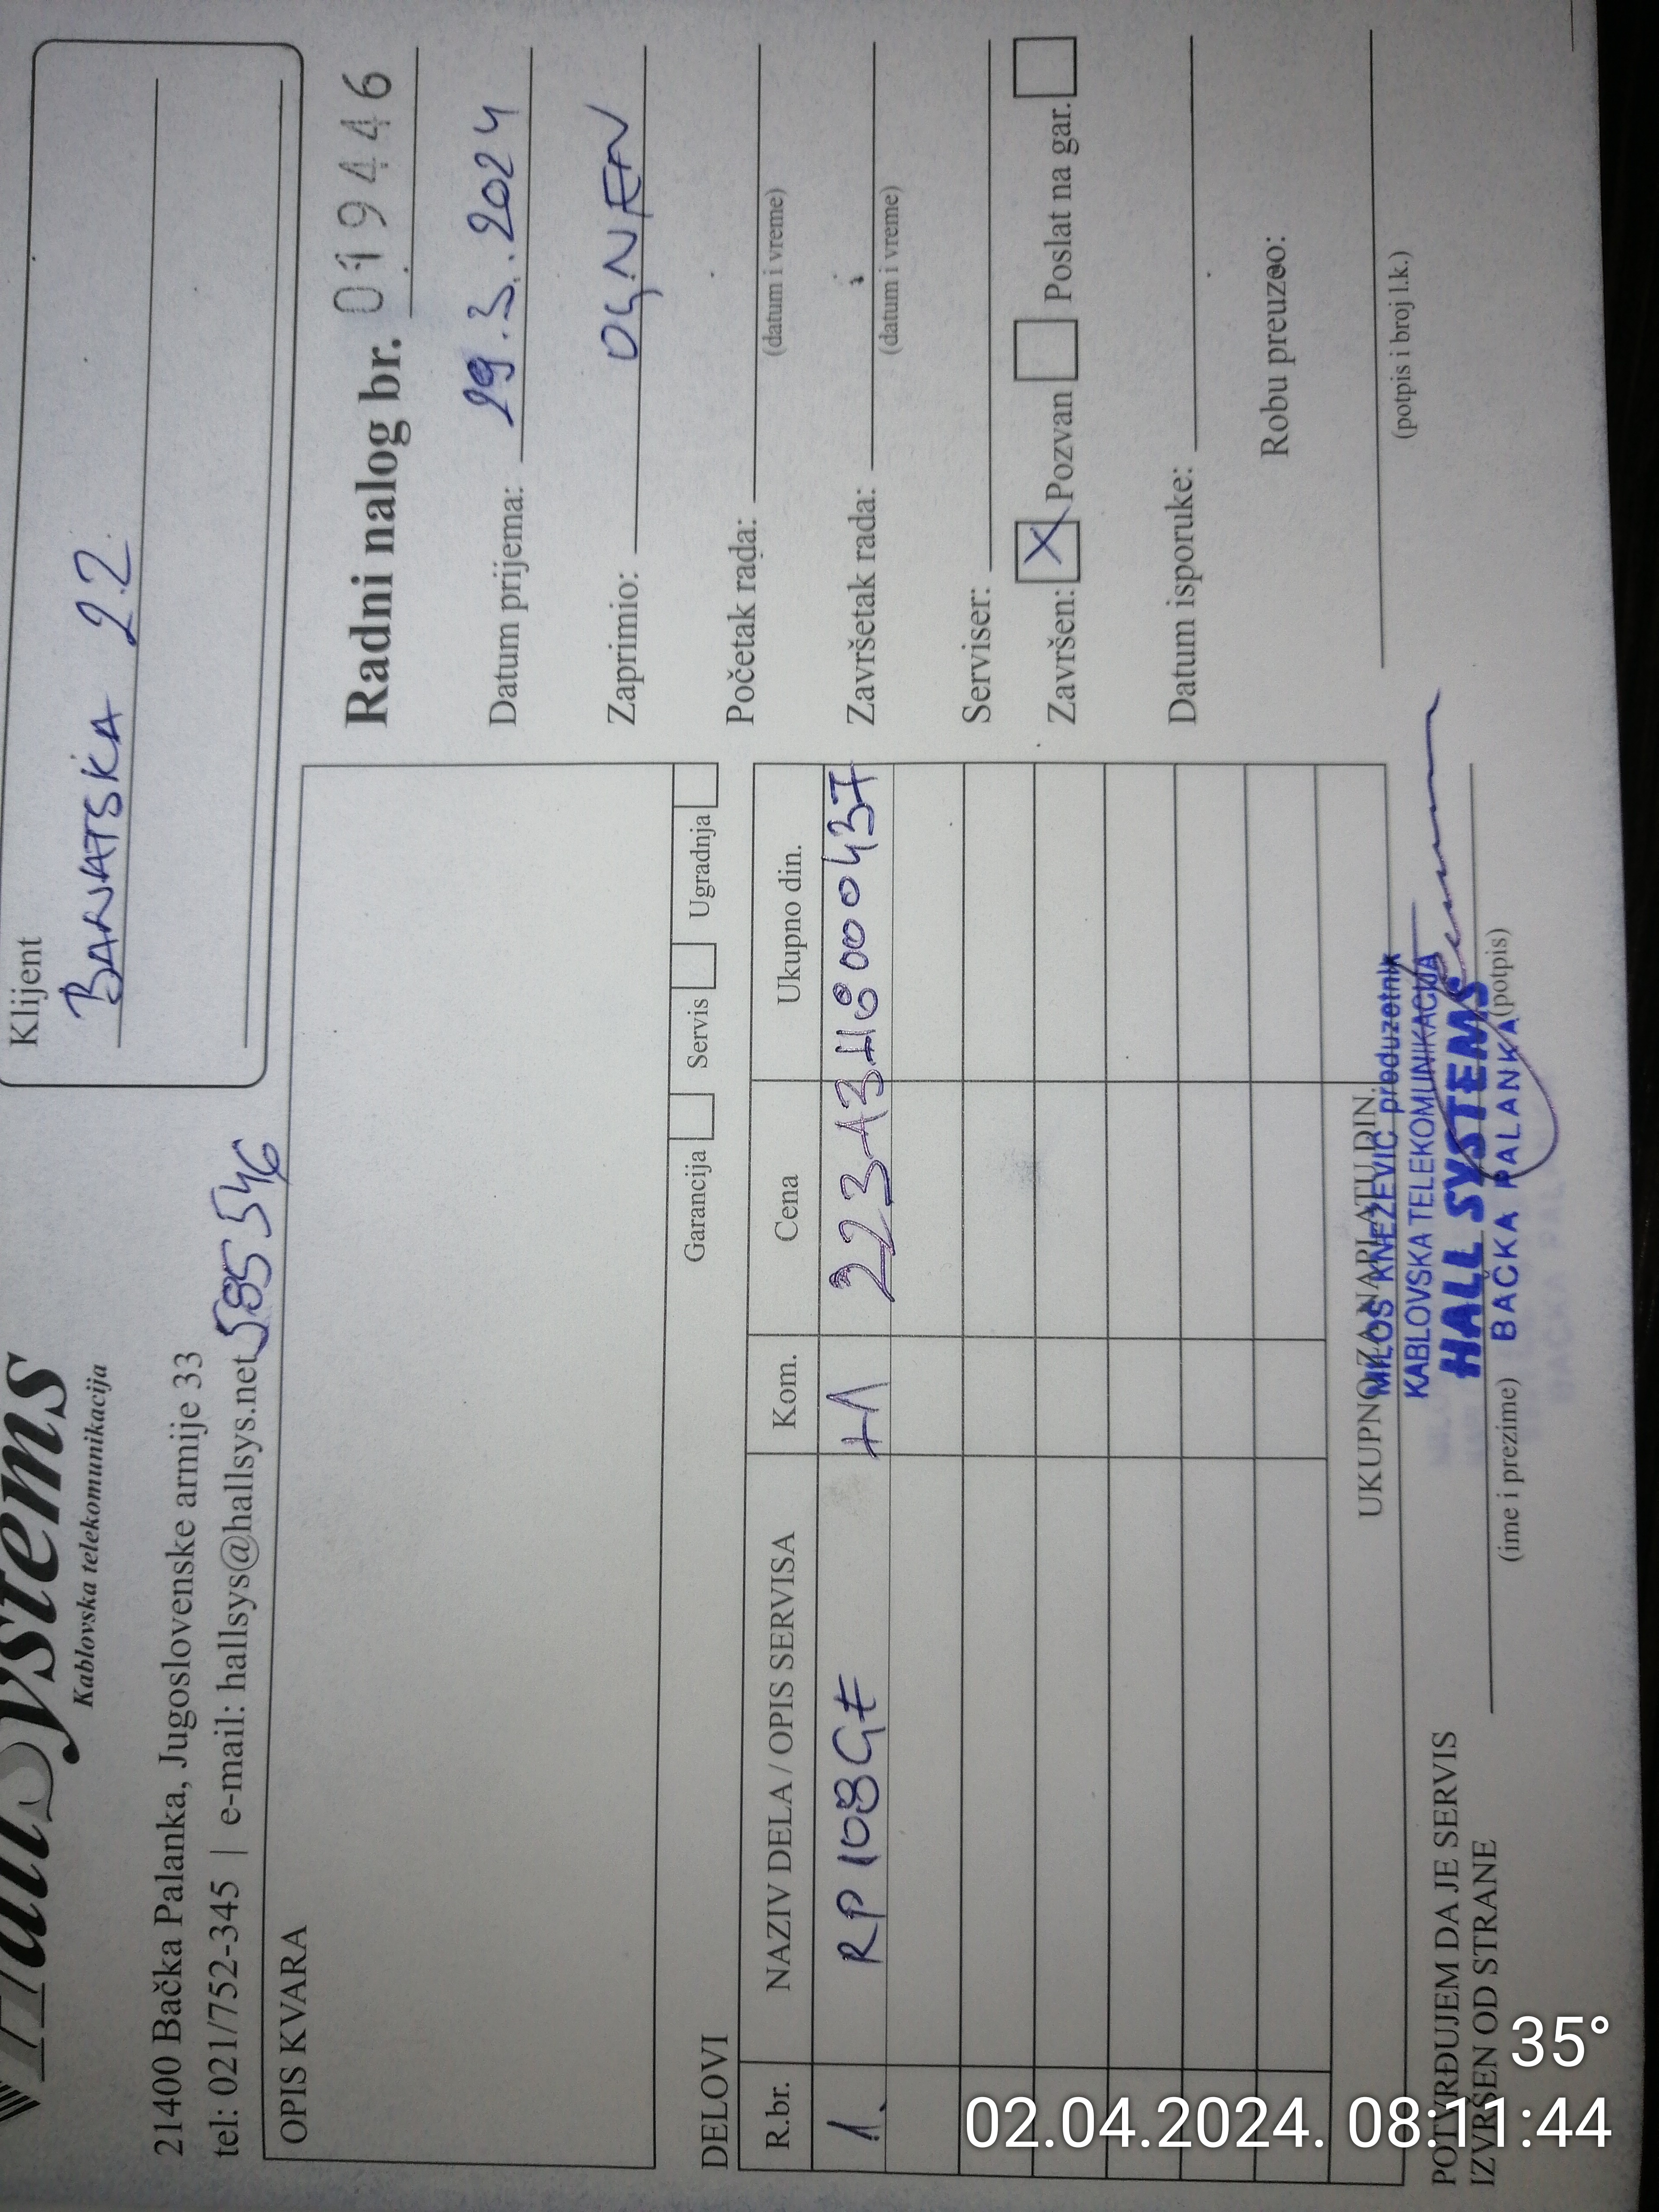 Hall Systems
Kablovska telekomunikacija
21400 Bačka Palanka, Jugoslovenske armije 33
tel: 021/752-345 | e-mail: hallsys@hallsys.net
585 546
Klijent
BANATSKA 22
OPIS KVARA
Garancija Servis Ugradnja
Radni nalog br. 019446
Datum prijema: 29.3.2024
Zaprimio: OGNJEN
Početak rada:
(datum i vreme)
Završetak rada:
(datum i vreme)
Serviser:
Završen: X Pozvan Poslat na gar.
Datum isporuke:
Robu preuzeo:
(potpis i broj l.k.)
DELOVI
R.br. NAZIV DELA / OPIS SERVISA Kom. Cena Ukupno din.
1. RP108GE 1 223A3H8000437
UKUPNO ZA NAPLATU DIN.
MILOŠ KNEŽEVIĆ preduzetnik
KABLOVSKA TELEKOMUNIKACIJA
HALL SYSTEMS
BAČKA PALANKA
POTVRĐUJEM DA JE SERVIS
IZVRŠEN OD STRANE
(ime i prezime) (potpis)
35°
02.04.2024. 08:11:44